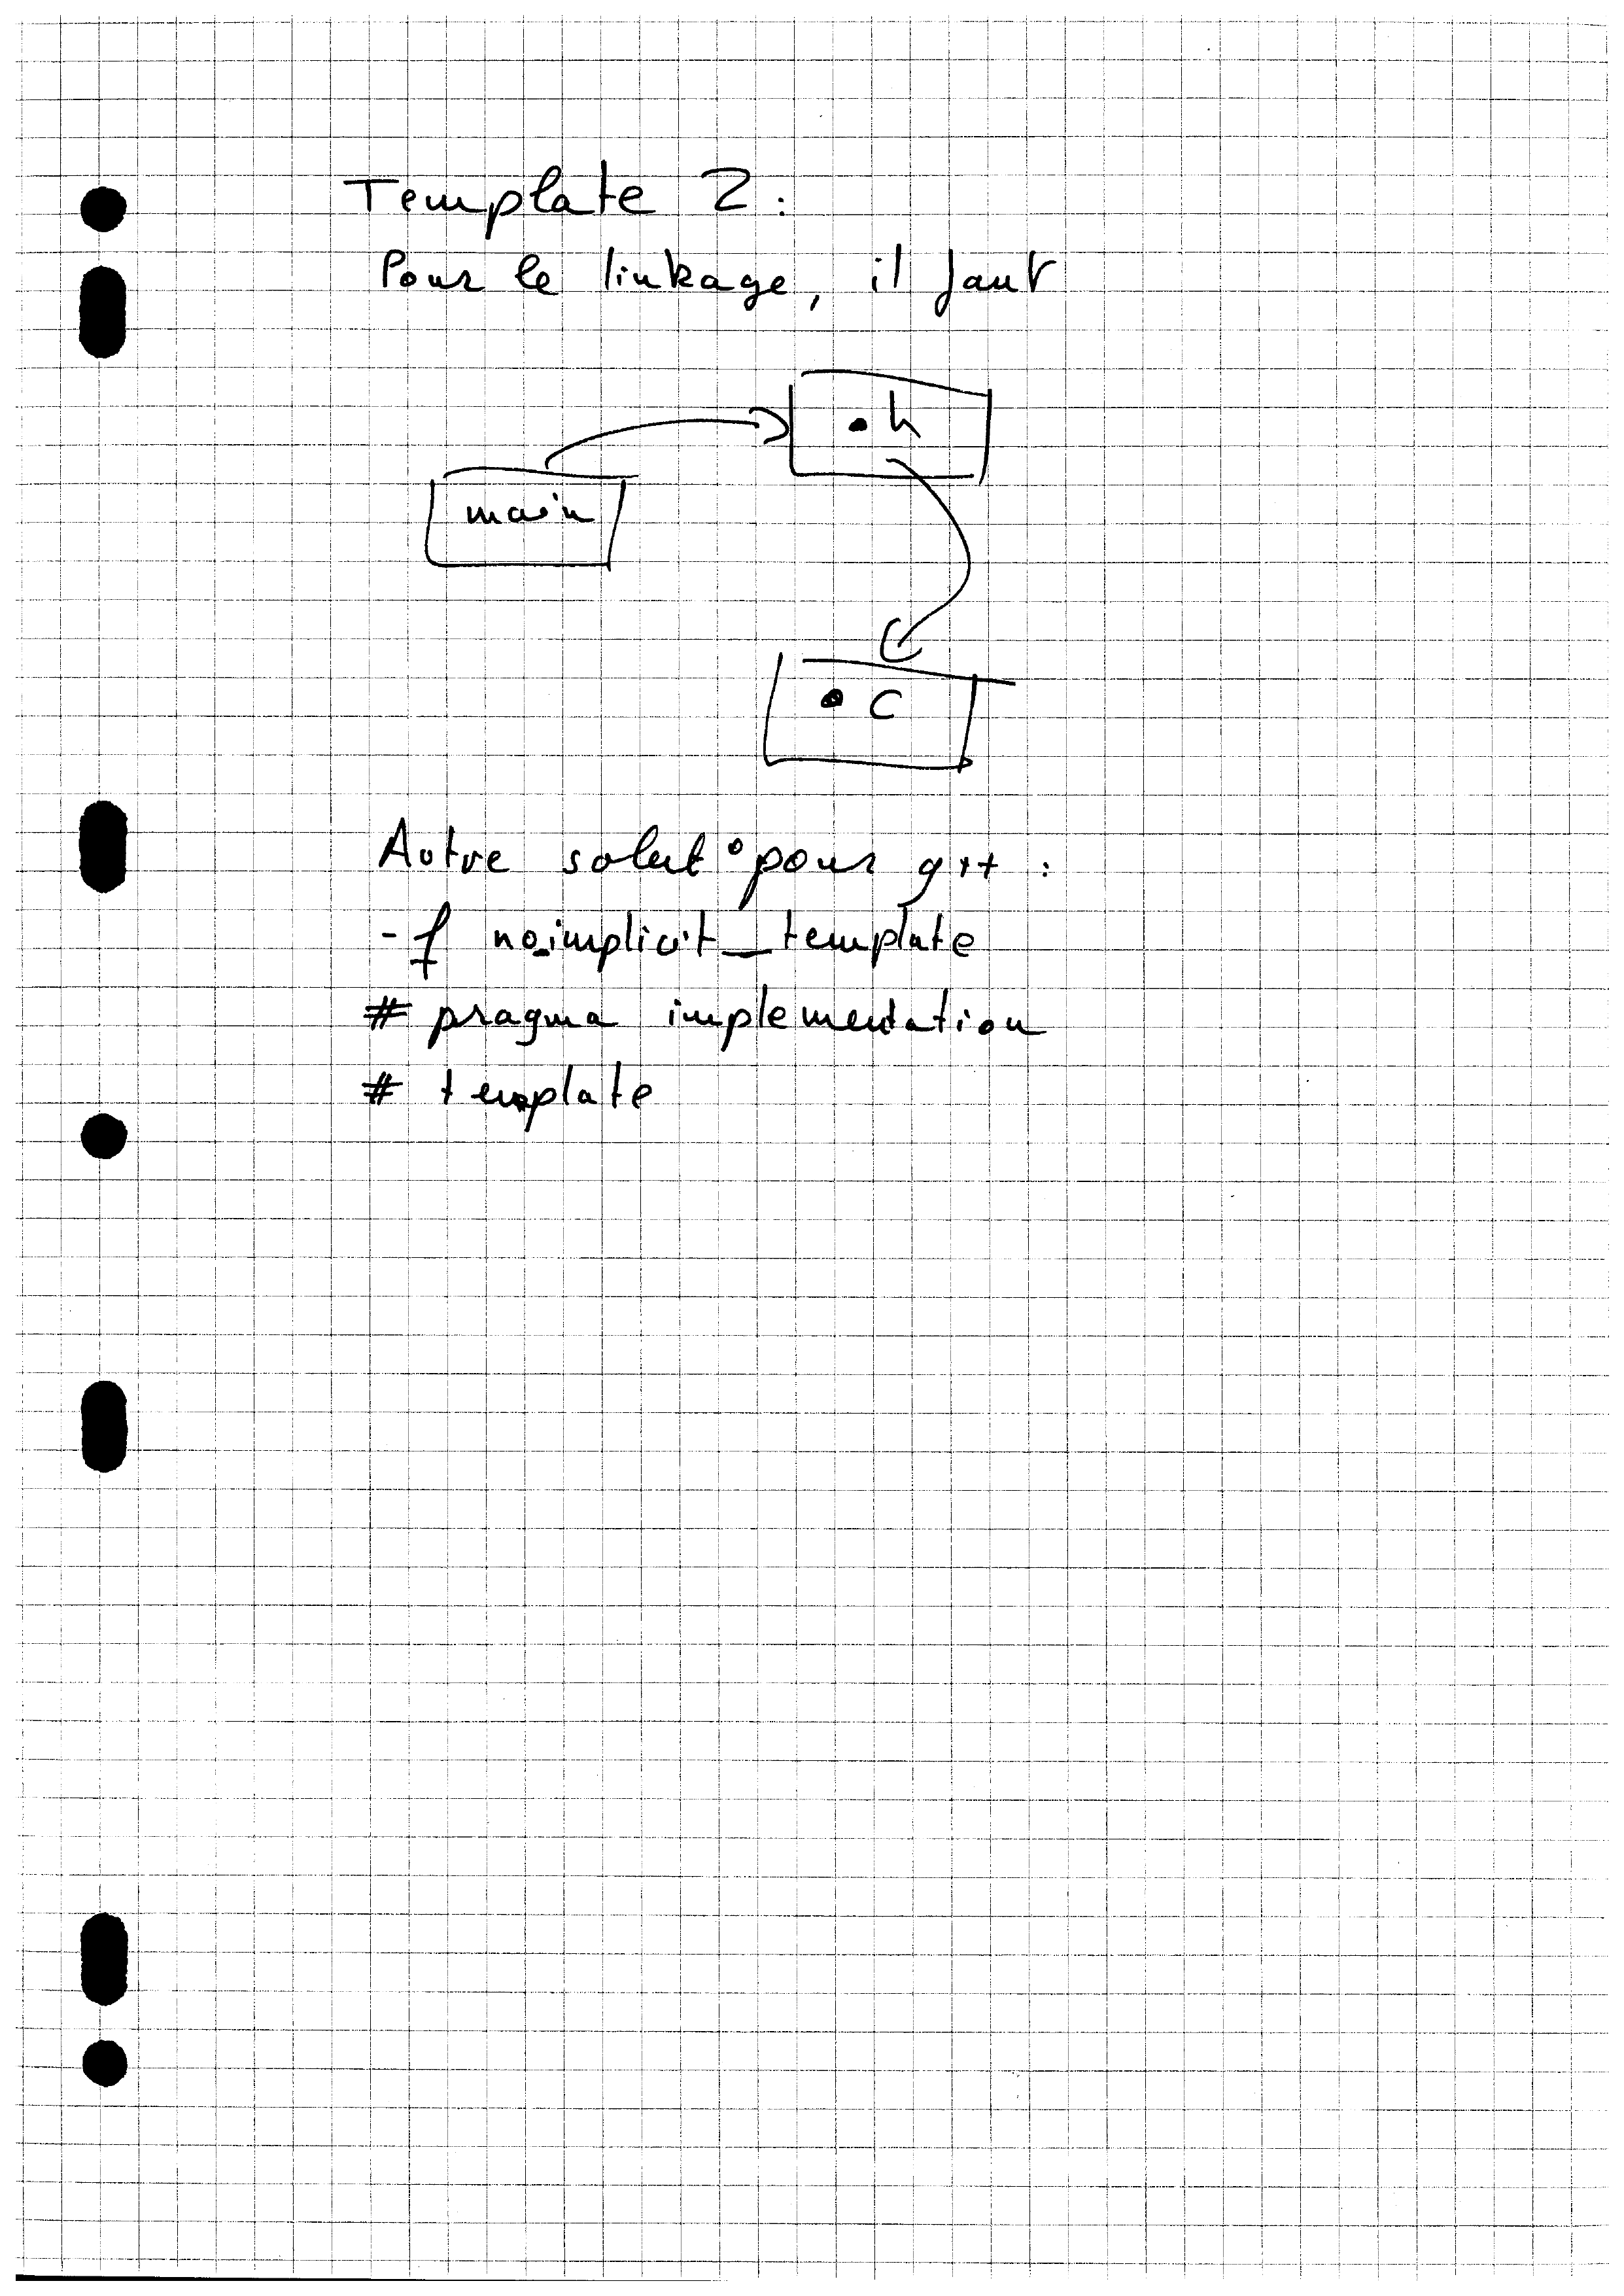 Template 2 :
Pour le linkage, il faut
.h
main
.c
Autre solut° pour g++ :
-f no_implicit_template
# pragma implementation
# template